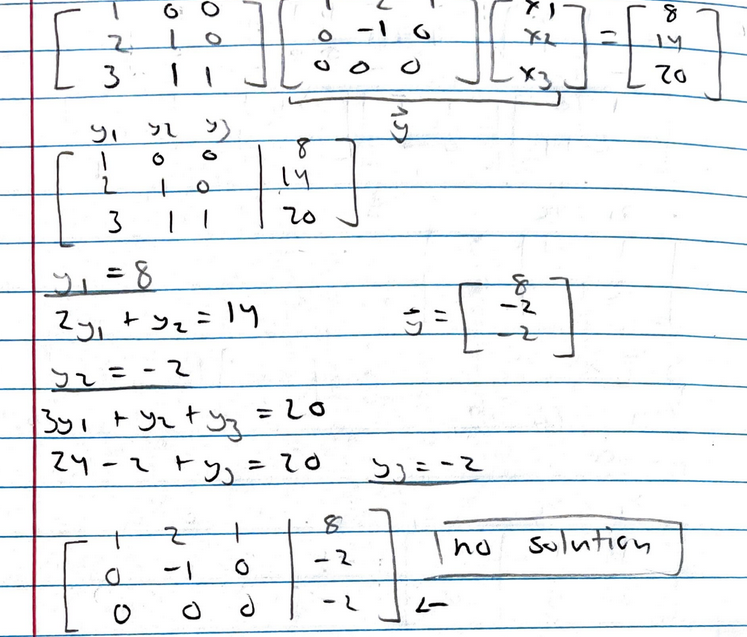 [1 0 0; 2 1 0; 3 1 1] [1 2 1; 0 -1 0; 0 0 0] [x1; x2; x3] = [8; 14; 20]
y⃗
y1 y2 y3
[1 0 0 | 8; 2 1 0 | 14; 3 1 1 | 20]
y1 = 8
2y1 + y2 = 14
y⃗ = [8; -2; -2]
y2 = -2
3y1 + y2 + y3 = 20
24 - 2 + y3 = 20 y3 = -2
[1 2 1 | 8; 0 -1 0 | -2; 0 0 0 | -2] ←
no solution